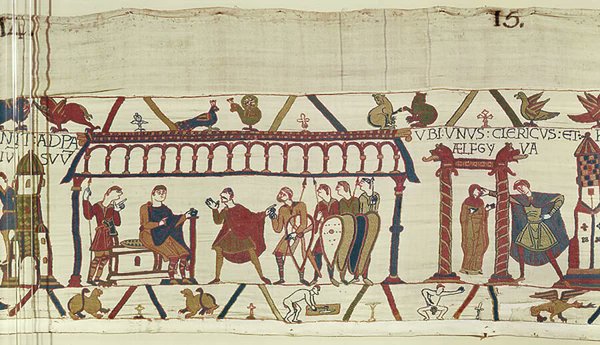 15.
NIT ADPA
IV SVV
VBI:VNVS:CLERICVS:ET:
ÆLFGYVA